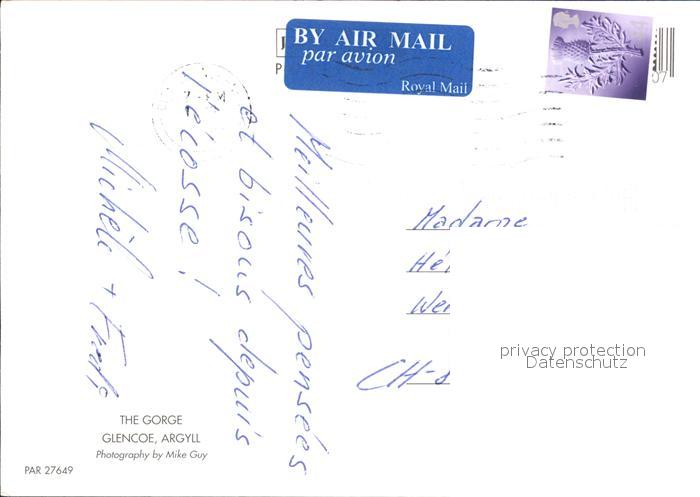 BY AIR MAIL
par avion
Royal Mail
Meilleures pensées
et bisous depuis
l'écosse !
Michèle +
Madame
Hé
We
CH-
privacy protection
Datenschutz
THE GORGE
GLENCOE, ARGYLL
Photography by Mike Guy
PAR 27649